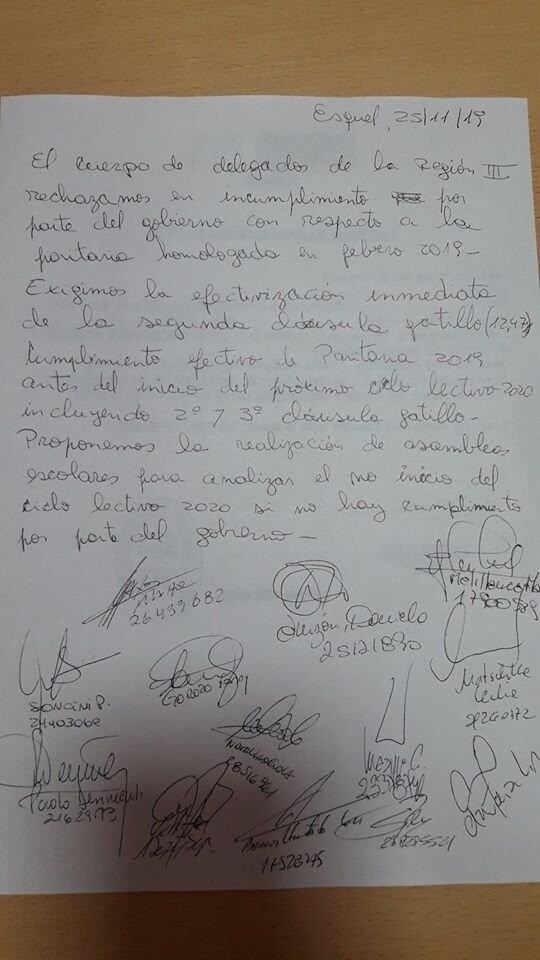 Esquel, 25/11/19
El cuerpo de delegados de la Región III
rechazamos en incumplimiento por
parte del gobierno con respecto a la
paritaria homologada en febrero 2019-
Exigimos la efectivización inmediata
de la segunda cláusula gatillo (12,47%)
Cumplimiento efectivo de Paritaria 2019
antes del inicio del próximo ciclo lectivo 2020
incluyendo 2º y 3º cláusula gatillo-
Proponemos la realización de asambleas
escolares para analizar el no inicio del
ciclo lectivo 2020 si no hay cumplimiento
por parte del gobierno-
26439682
Daniela
25121890
SONCINI P.
24403062
GOROZO
Matschke
17523275